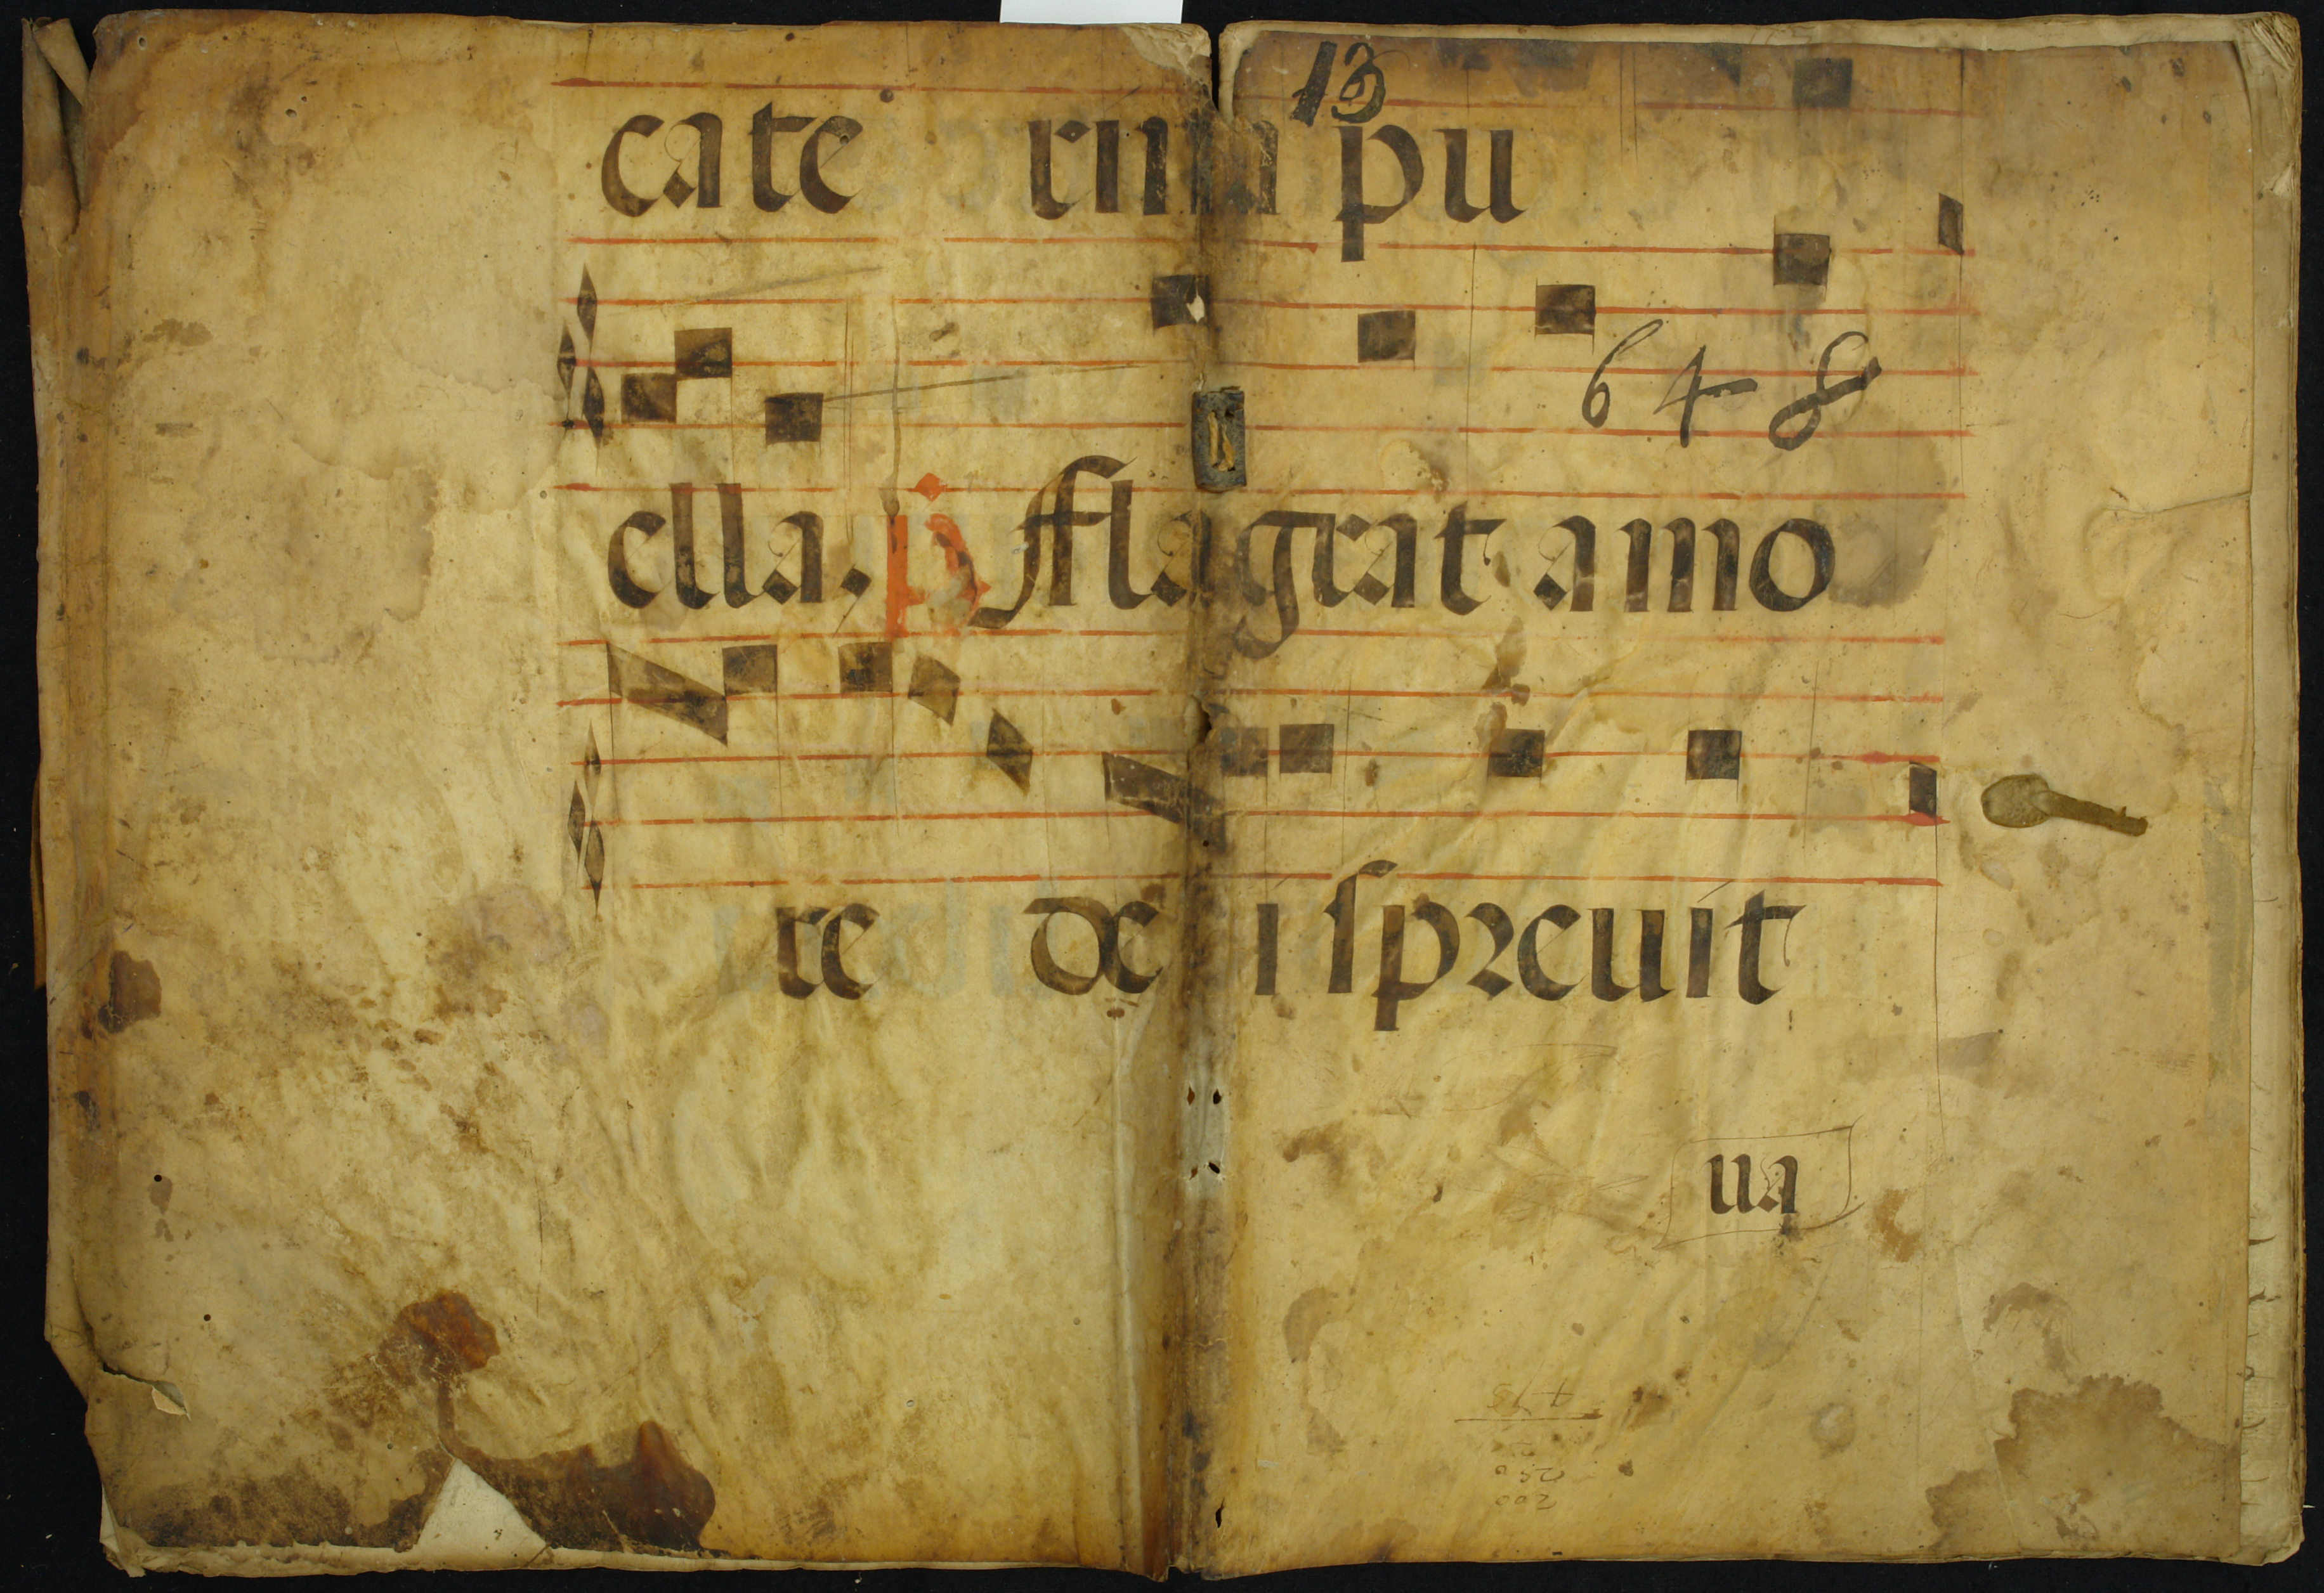 13
cate rinan pu
648
ella, p fflagrat amo
re de i spreuit
ua
200